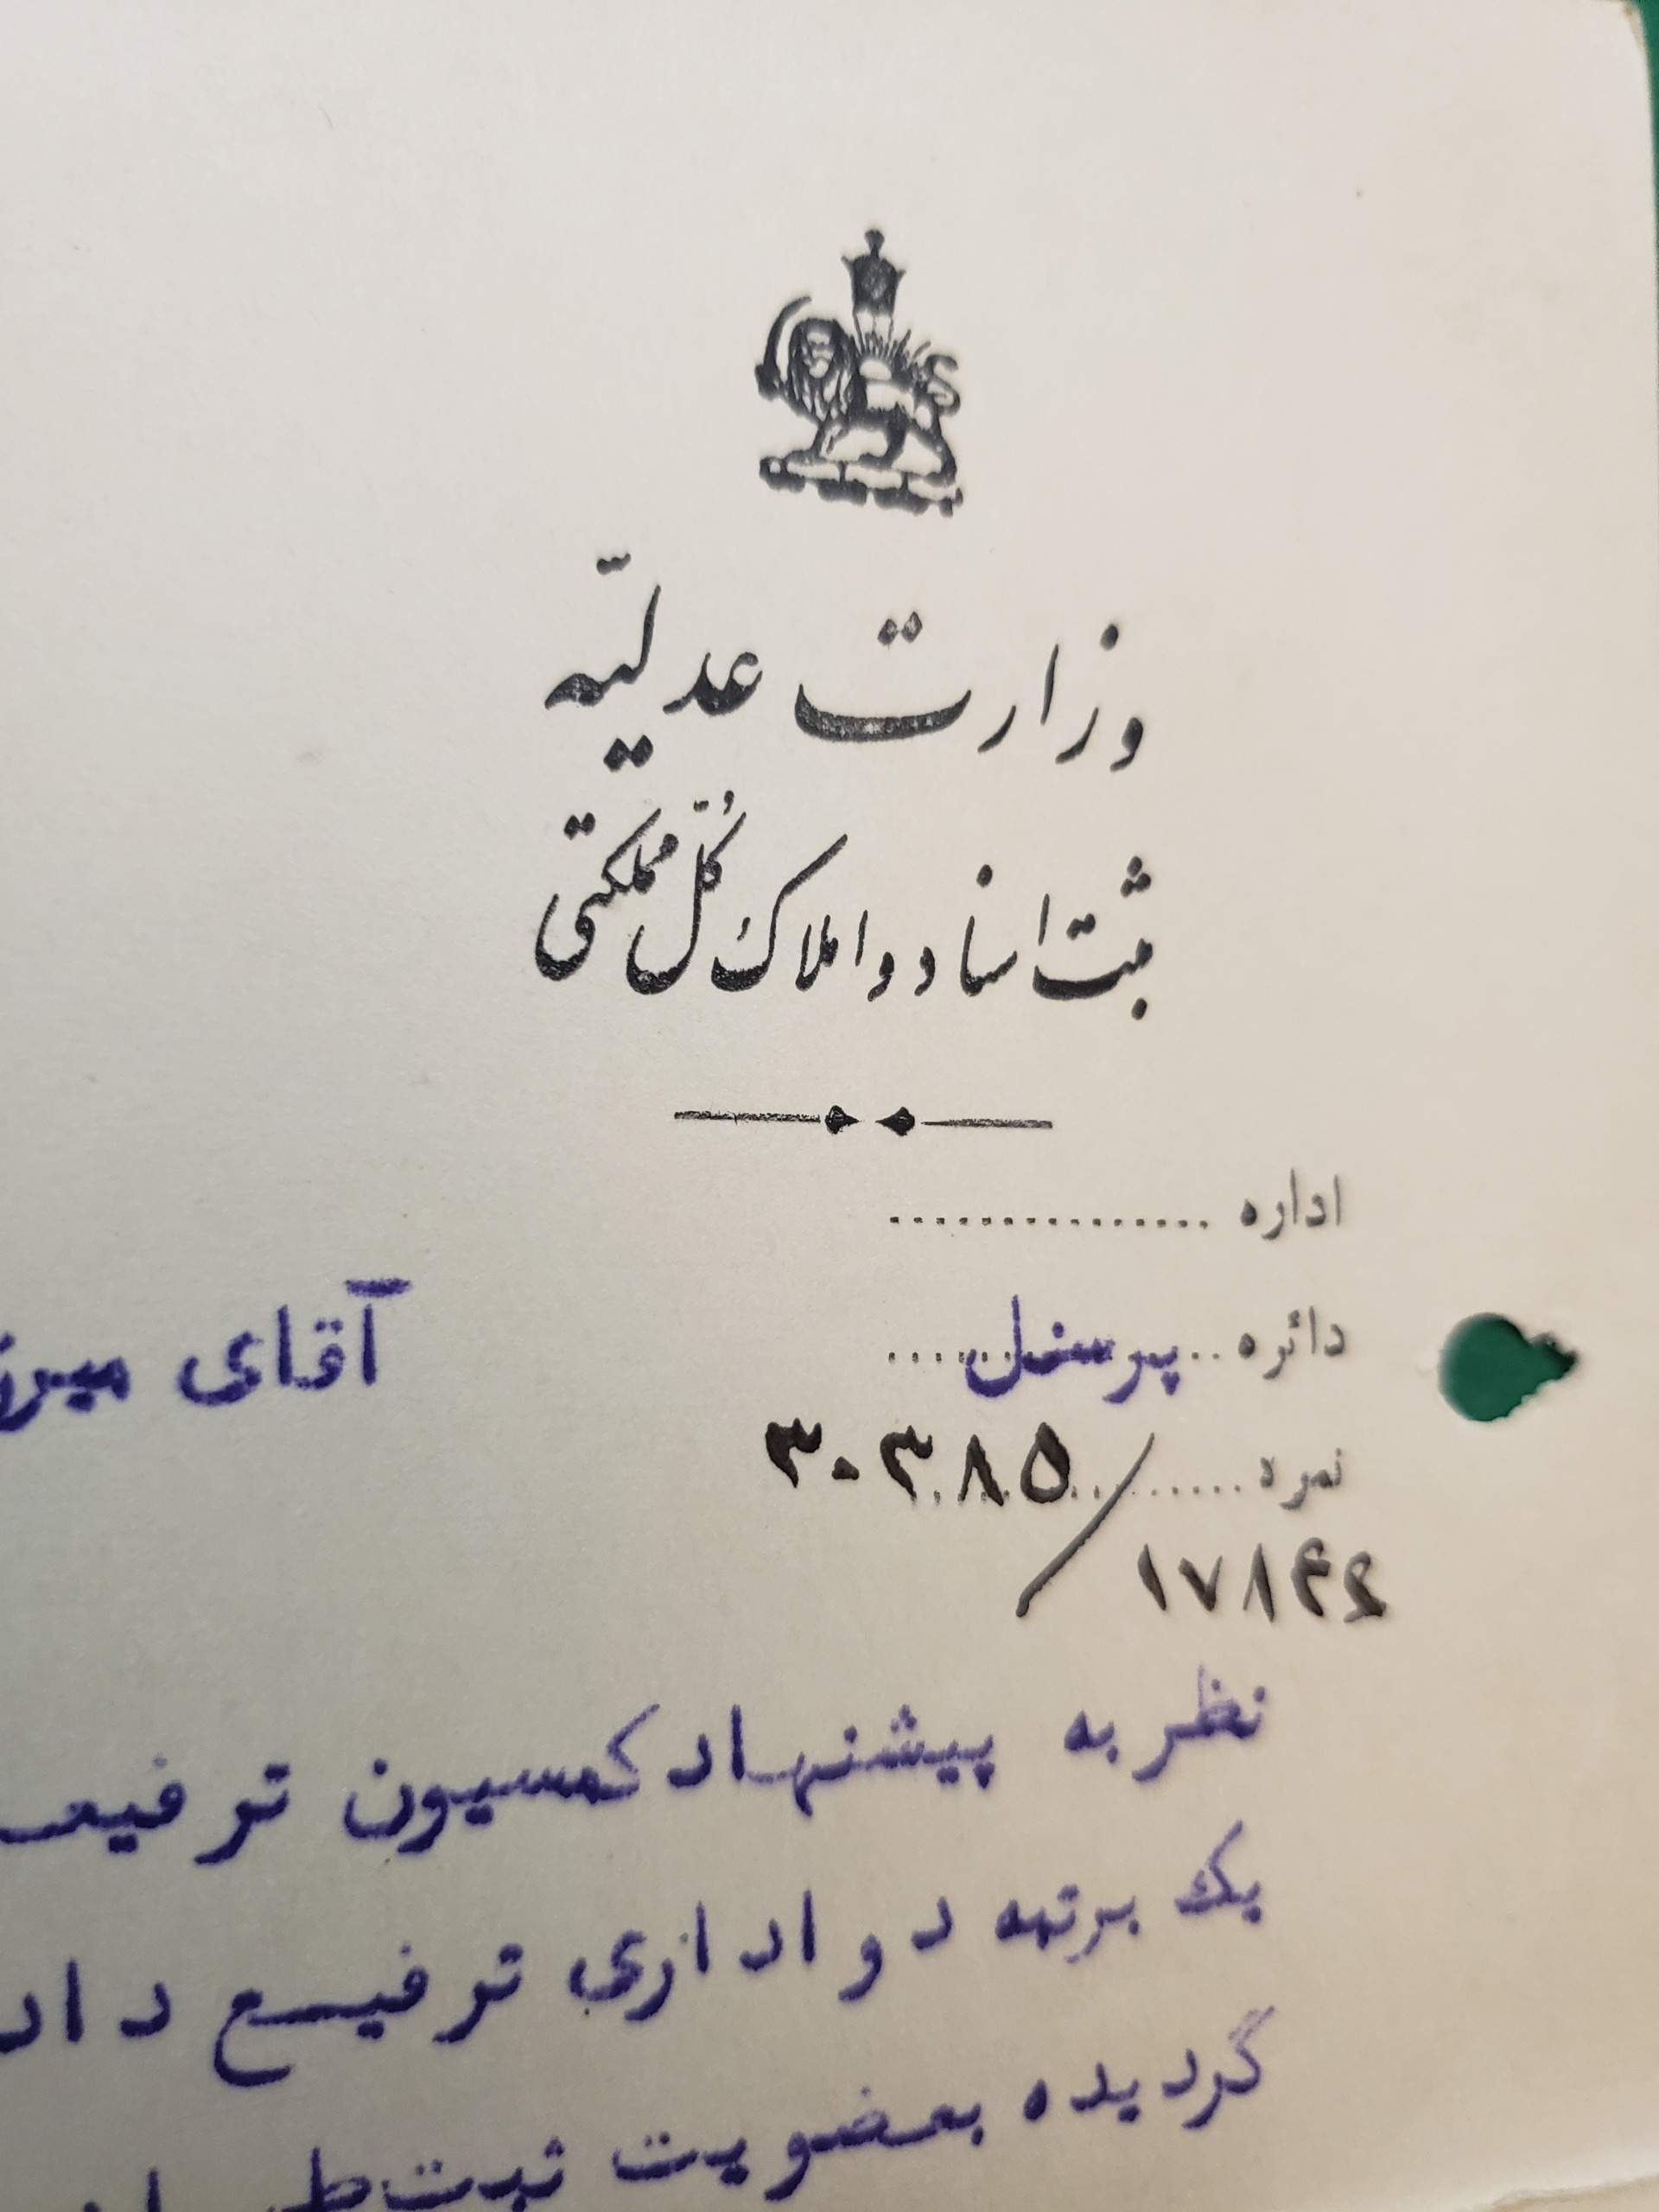 وزارت عدلیّه
ثبت اسناد و املاک کُلّ مملکتی
اداره ................
دائره .. پرسنل ....
آقای
نمره ........ ۳۰۳۸۵/
۱۷۸۴۶
نظر به پیشنهاد کمسیون ترفیع
یک برتبه دو اداری ترفیع داد
گردیده بعضویت ثبت